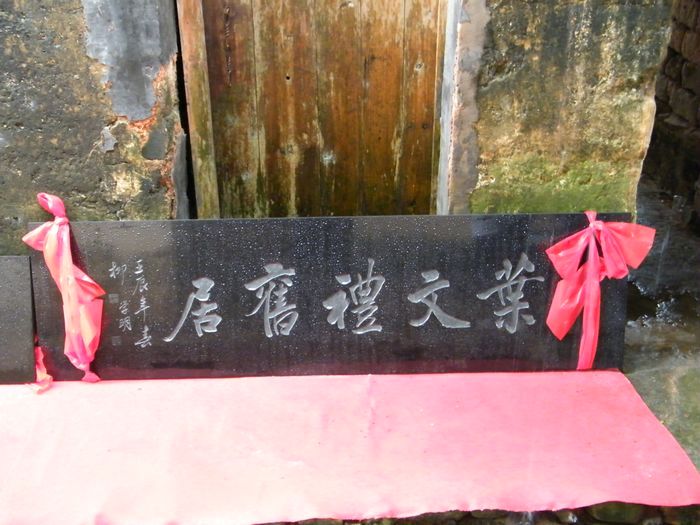 葉文禮舊居
壬辰年春
柳學明